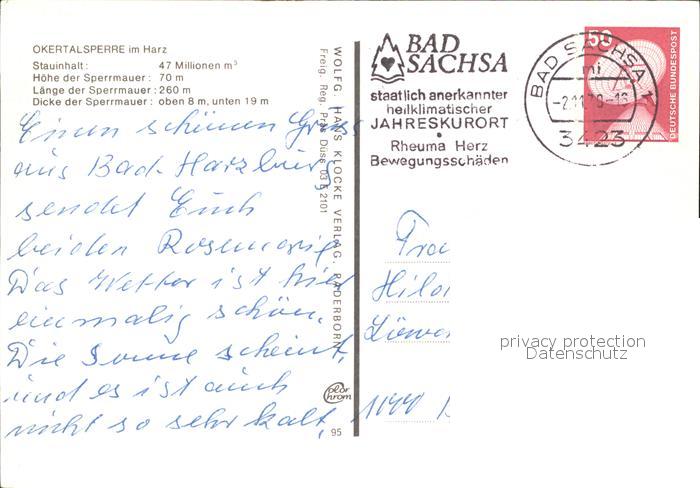 OKERTALSPERRE im Harz
Stauinhalt: 47 Millionen m³
Höhe der Sperrmauer: 70 m
Länge der Sperrmauer: 260 m
Dicke der Sperrmauer: oben 8 m, unten 19 m
Einen schönen Gruss
aus Bad-Harzburg
sendet Euch
beiden Rosemarie
Das Wetter ist hier
einmalig schön.
Die Sonne scheint,
und es ist auch
nicht so sehr kalt.
WOLFG. HANS KLOCKE VERLAG, PADERBORN
Freig. Reg. Präs. Düss.
95
BAD
SACHSA
staatlich anerkannter
heilklimatischer
JAHRESKURORT
•
Rheuma Herz
Bewegungsschäden
BAD SACHSA 1
mi
3423
50
DEUTSCHE BUNDESPOST
Frau
Hild
Löwe
privacy protection
Datenschutz